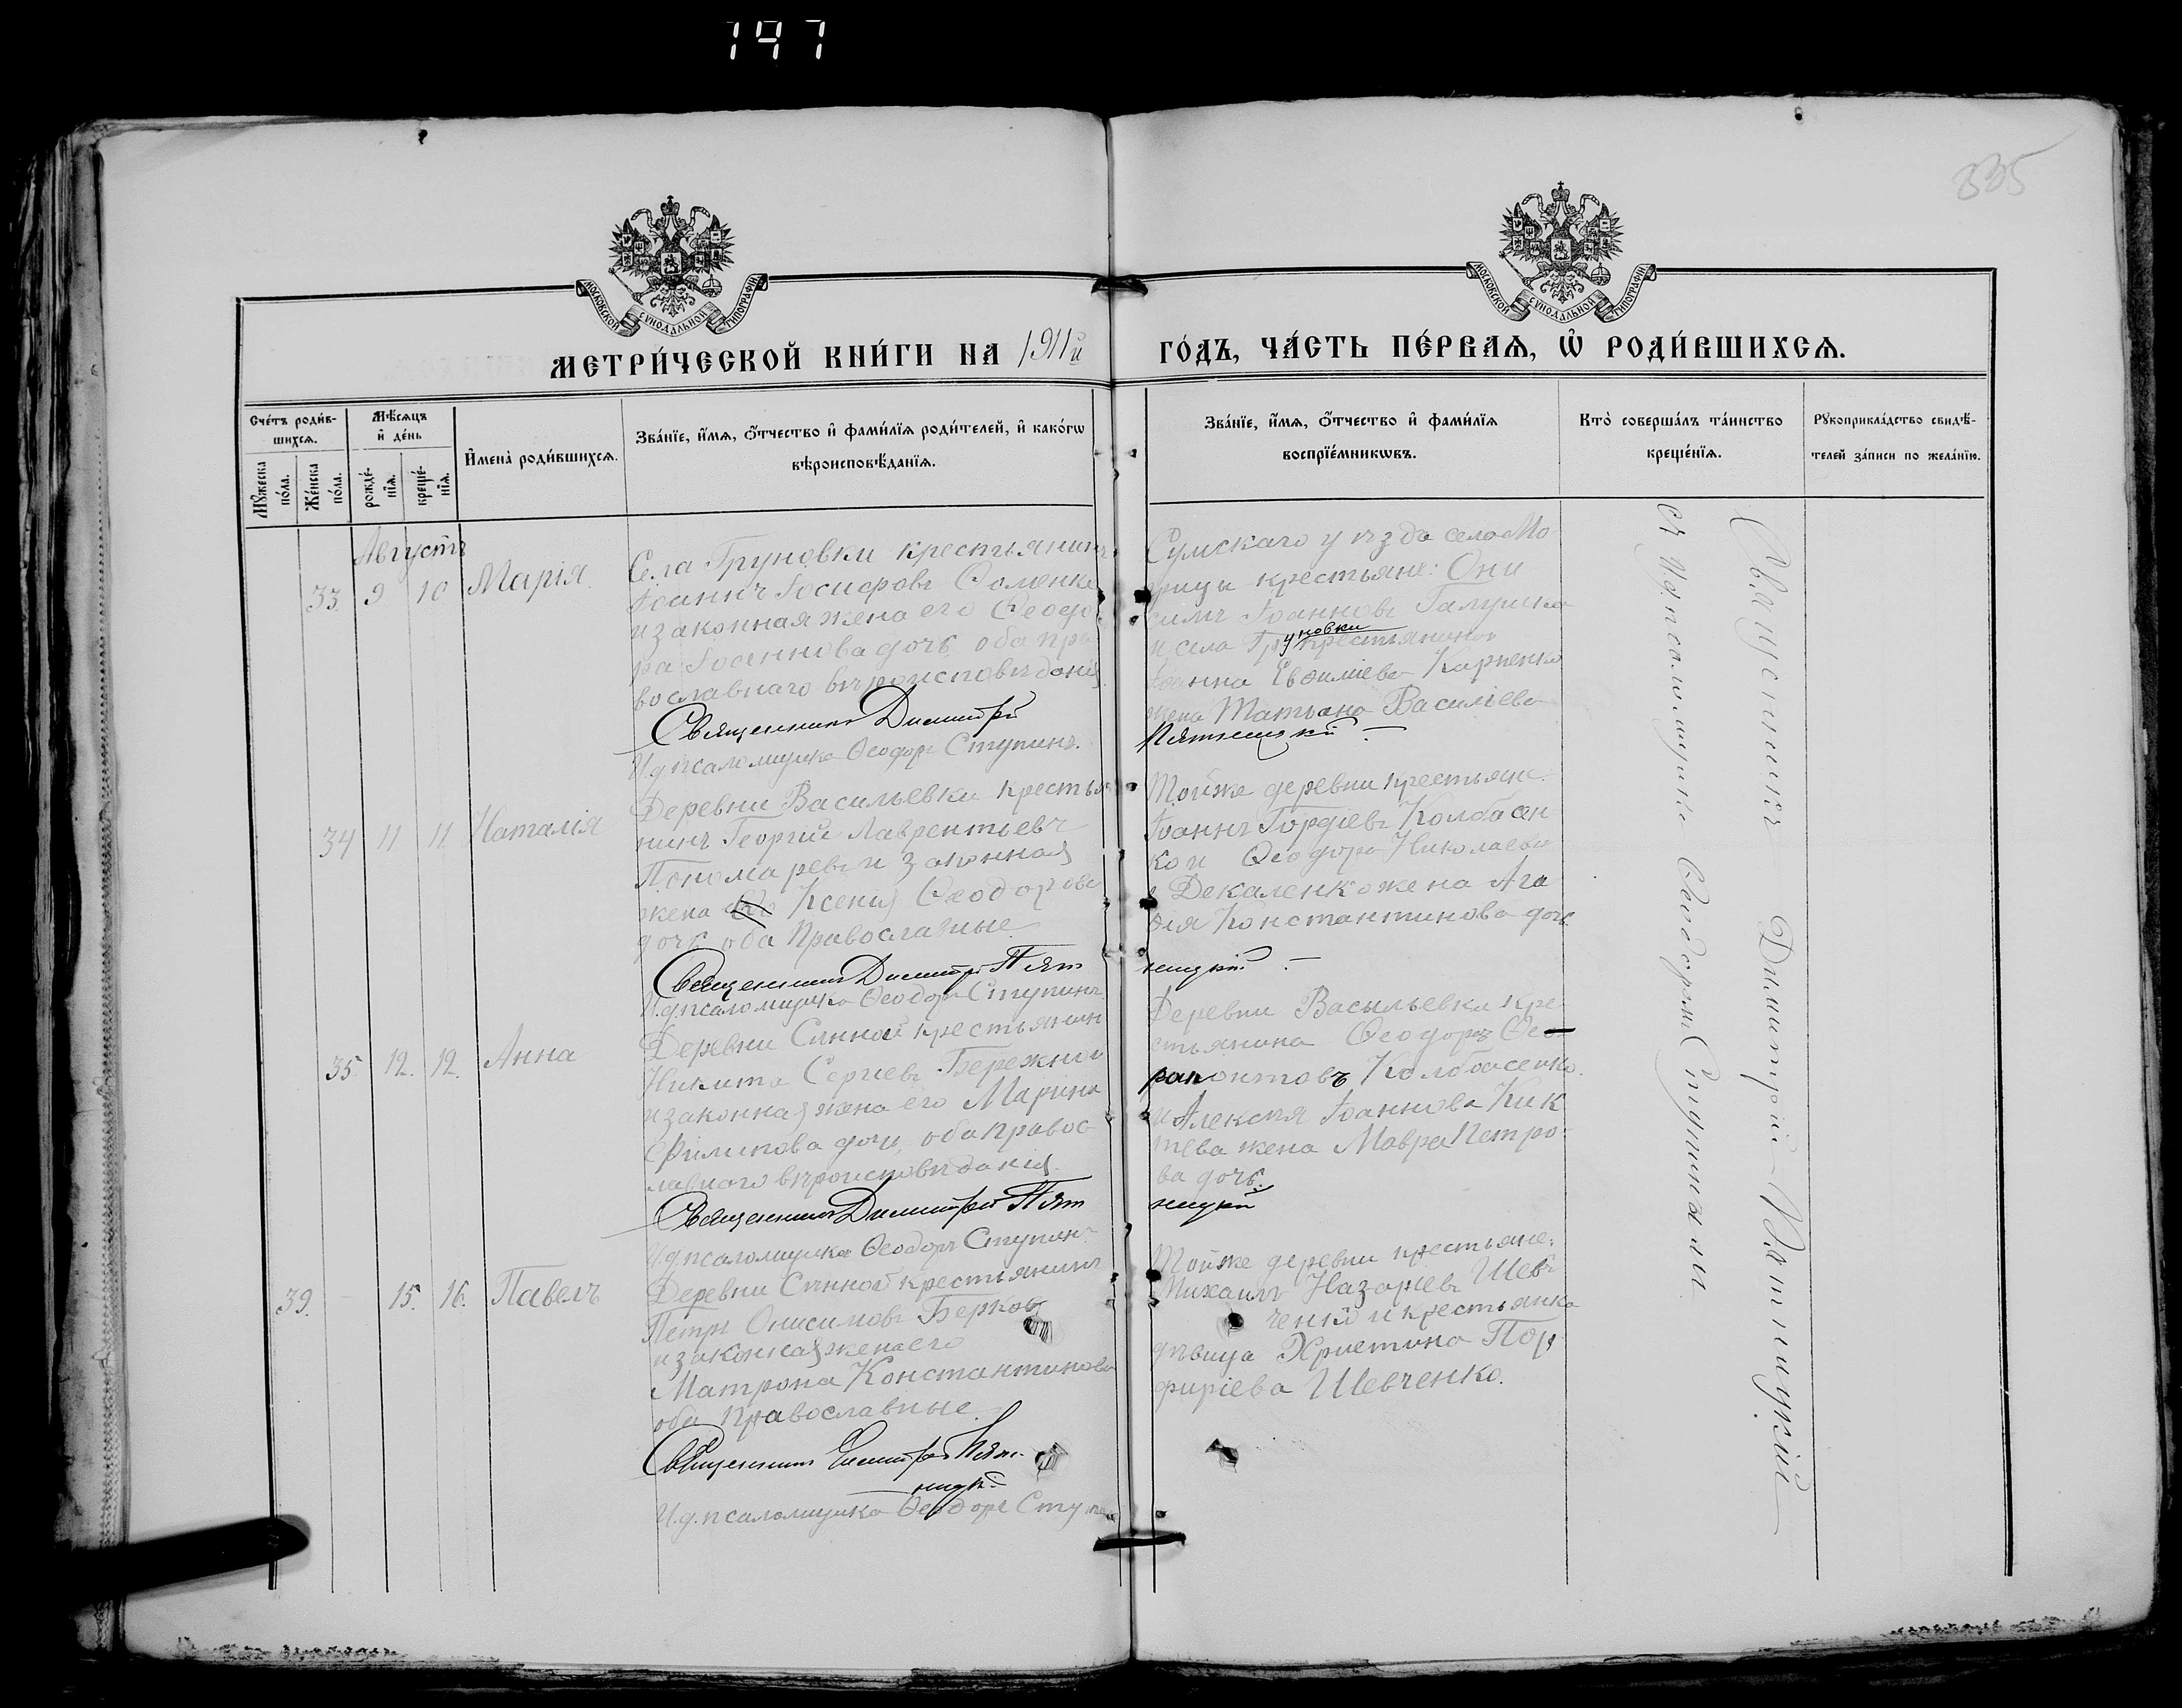 147
335
МОСКОВСКОЙ СѴНОДАЛЬНОЙ ТИПОГРАФІИ.
МОСКОВСКОЙ СѴНОДАЛЬНОЙ ТИПОГРАФІИ.
МЕТРИ́ЧЕСКОЙ КНИ́ГИ НА 1911й ГО́ДЪ, ЧА́СТЬ ПЕ́РВАѦ, Ѡ҆ РОДИ́ВШИХСѦ.
Сче́тъ роди́в-
шихсѧ.
Мꙋ́жеска
по́ла.
Же́нска
по́ла.
Мѣ́сѧцъ
и҆ де́нь
рожде́-
нїѧ.
креще́-
нїѧ.
И҆мена̀ роди́вшихсѧ.
Зва́нїе, и҆́мѧ, ѻ҆́тчество и҆ фами́лїѧ роди́телей, и҆ како́гѡ
вѣроисповѣ́данїѧ.
Зва́нїе, и҆́мѧ, ѻ҆́тчество и҆ фами́лїѧ
воспрїе́мникѡвъ.
Кто̀ соверша́лъ та́инство
креще́нїѧ.
Рꙋкоприкла́дство свидѣ́-
телей за́писи по жела́нїю.
Августъ
33. 9 10 Марія.
Села Груновки крестьянинъ
Іоаннъ Іосифовъ Фоменко
и законная жена его Ѳеодо
ра Іоаннова дочь оба пра
вославнаго вѣроисповѣданія.
Священникъ Димитрій
И.д. псаломщика Ѳеодоръ Ступинъ.
Сумскаго уѣзда села Мо
рицы крестьяне: Они
симъ Іоанновъ Галушка
и села Груновки крестьянина
Іоанна Евѳиміева Карпенко
жена Татьяна Васильева
Пятницкій
34 11 11 Наталія
Деревни Васильевки крестья
нинъ Георгій Лаврентьевъ
Пономаревъ и законная
жена его Ксенія Ѳеодорова
дочь оба православные
Священникъ Димитрій Пят
И.д. псаломщика Ѳеодоръ Ступинъ
Тойже деревни крестьяне
Іоаннъ Гордіевъ Колбасен
ко и Ѳеодора Николаева
Декаленко жена Ага
ѳія Константинова дочь.
ницкій
35 12. 12. Анна
Деревни Сѣнной крестьянин
Никита Сергіевъ Бережной
и законная жена его Марина
Филипова дочь, оба правос
лавнаго вѣроисповѣданія.
Священникъ Димитрій Пят
И.д. псаломщика Ѳеодоръ Ступинъ
Деревни Васильевки кре
стьянина Ѳеодоръ Ѳе
рапонтовъ Колбасенко
и Алексѣя Іоаннова Кик
тева жена Мавра Петро
ва дочь.
ницкій
39. 15. 16. Павелъ
Деревни Сѣнной крестьянинъ
Петръ Онисимовъ Берков
и законная жена его
Матрона Константинова
оба православные
Священникъ Димитрій Пят
ницкій
И.д. псаломщика Ѳеодоръ Ступин
Тойже деревни крестьяне:
Михаилъ Назаріевъ Шев
ченко и крестьянка
дѣвица Христина Пор
фиріева Шевченко.
Священникъ Димитрій Пятницкій
съ и.д. псаломщика Ѳеодоромъ Ступинымъ